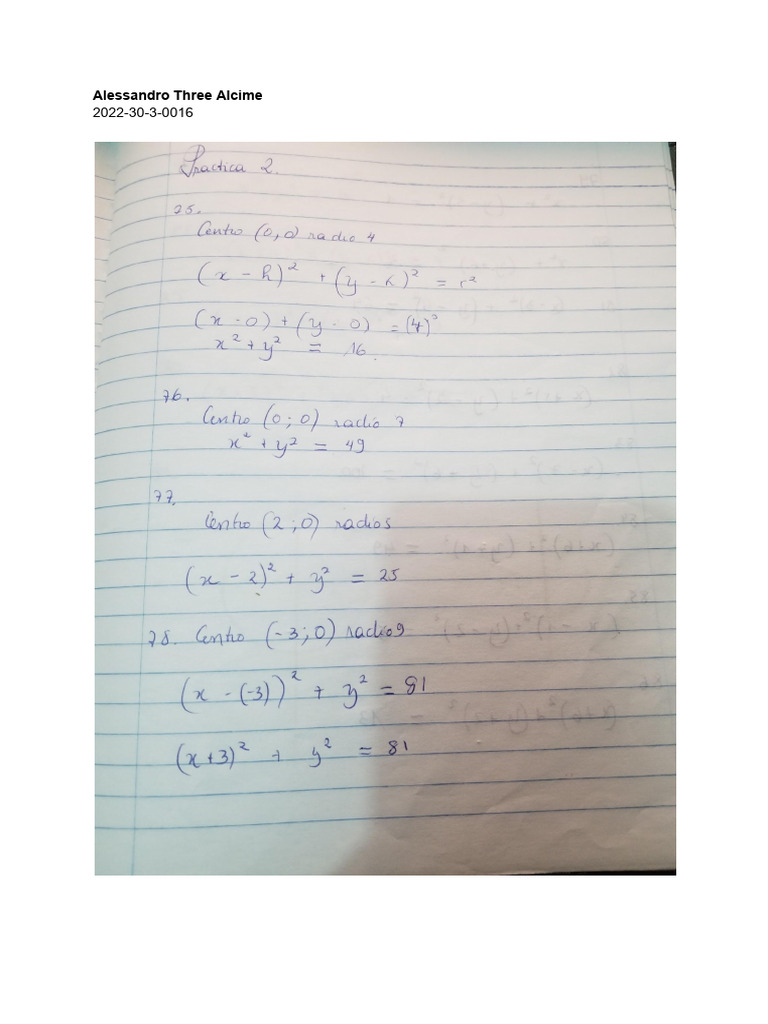 Alessandro Three Alcime
2022-30-3-0016
Practica 2.
75.
Centro (0,0) radio 4
(x - h)² + (y - k)² = r²
(x - 0) + (y - 0) = (4)²
x² + y² = 16.
76.
Centro (0; 0) radio 7
x² + y² = 49
77.
Centro (2; 0) radio 5
(x - 2)² + y² = 25
78. Centro (-3; 0) radio 9
(x - (-3))² + y² = 81
(x+3)² + y² = 81